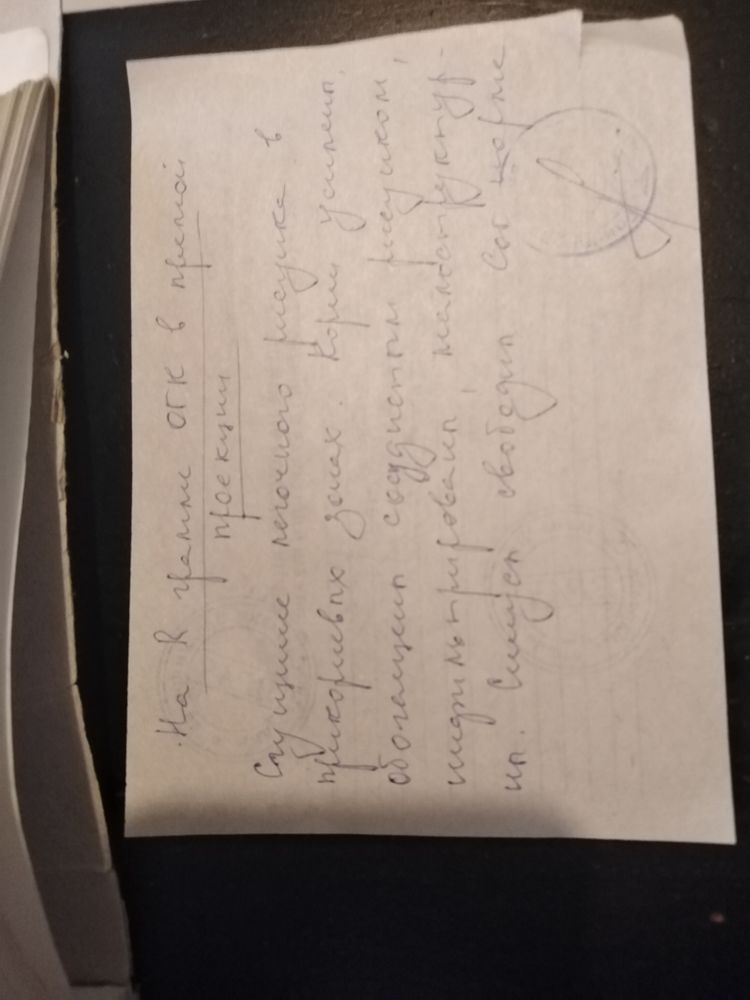 На R грамме ОГК в прямой
проекции
Сгущение легочного рисунка в
прикорневых зонах. Корни усилены,
обогащены сосудистым рисунком,
инфильтрированы, малоструктур-
ны. Синусы свободны Cor норме